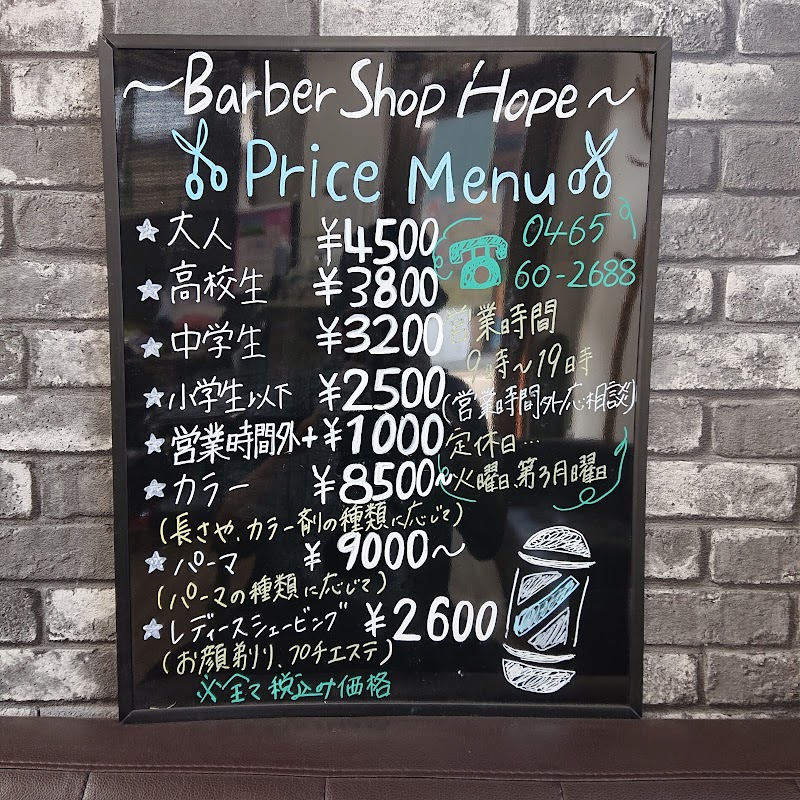 ～Barber Shop Hope～
Price Menu
★大人 ¥4500
★高校生 ¥3800
★中学生 ¥3200
★小学生以下 ¥2500
★営業時間外+¥1000
★カラー ¥8500～
(長さや、カラー剤の種類に応じて)
★パーマ ¥9000～
(パーマの種類に応じて)
★レディースシェービング ¥2600
(お顔剃り、プチエステ)
※全て税込み価格
0465
60-2688
営業時間
9時～19時
(営業時間外応相談)
定休日…
火曜日、第3月曜日